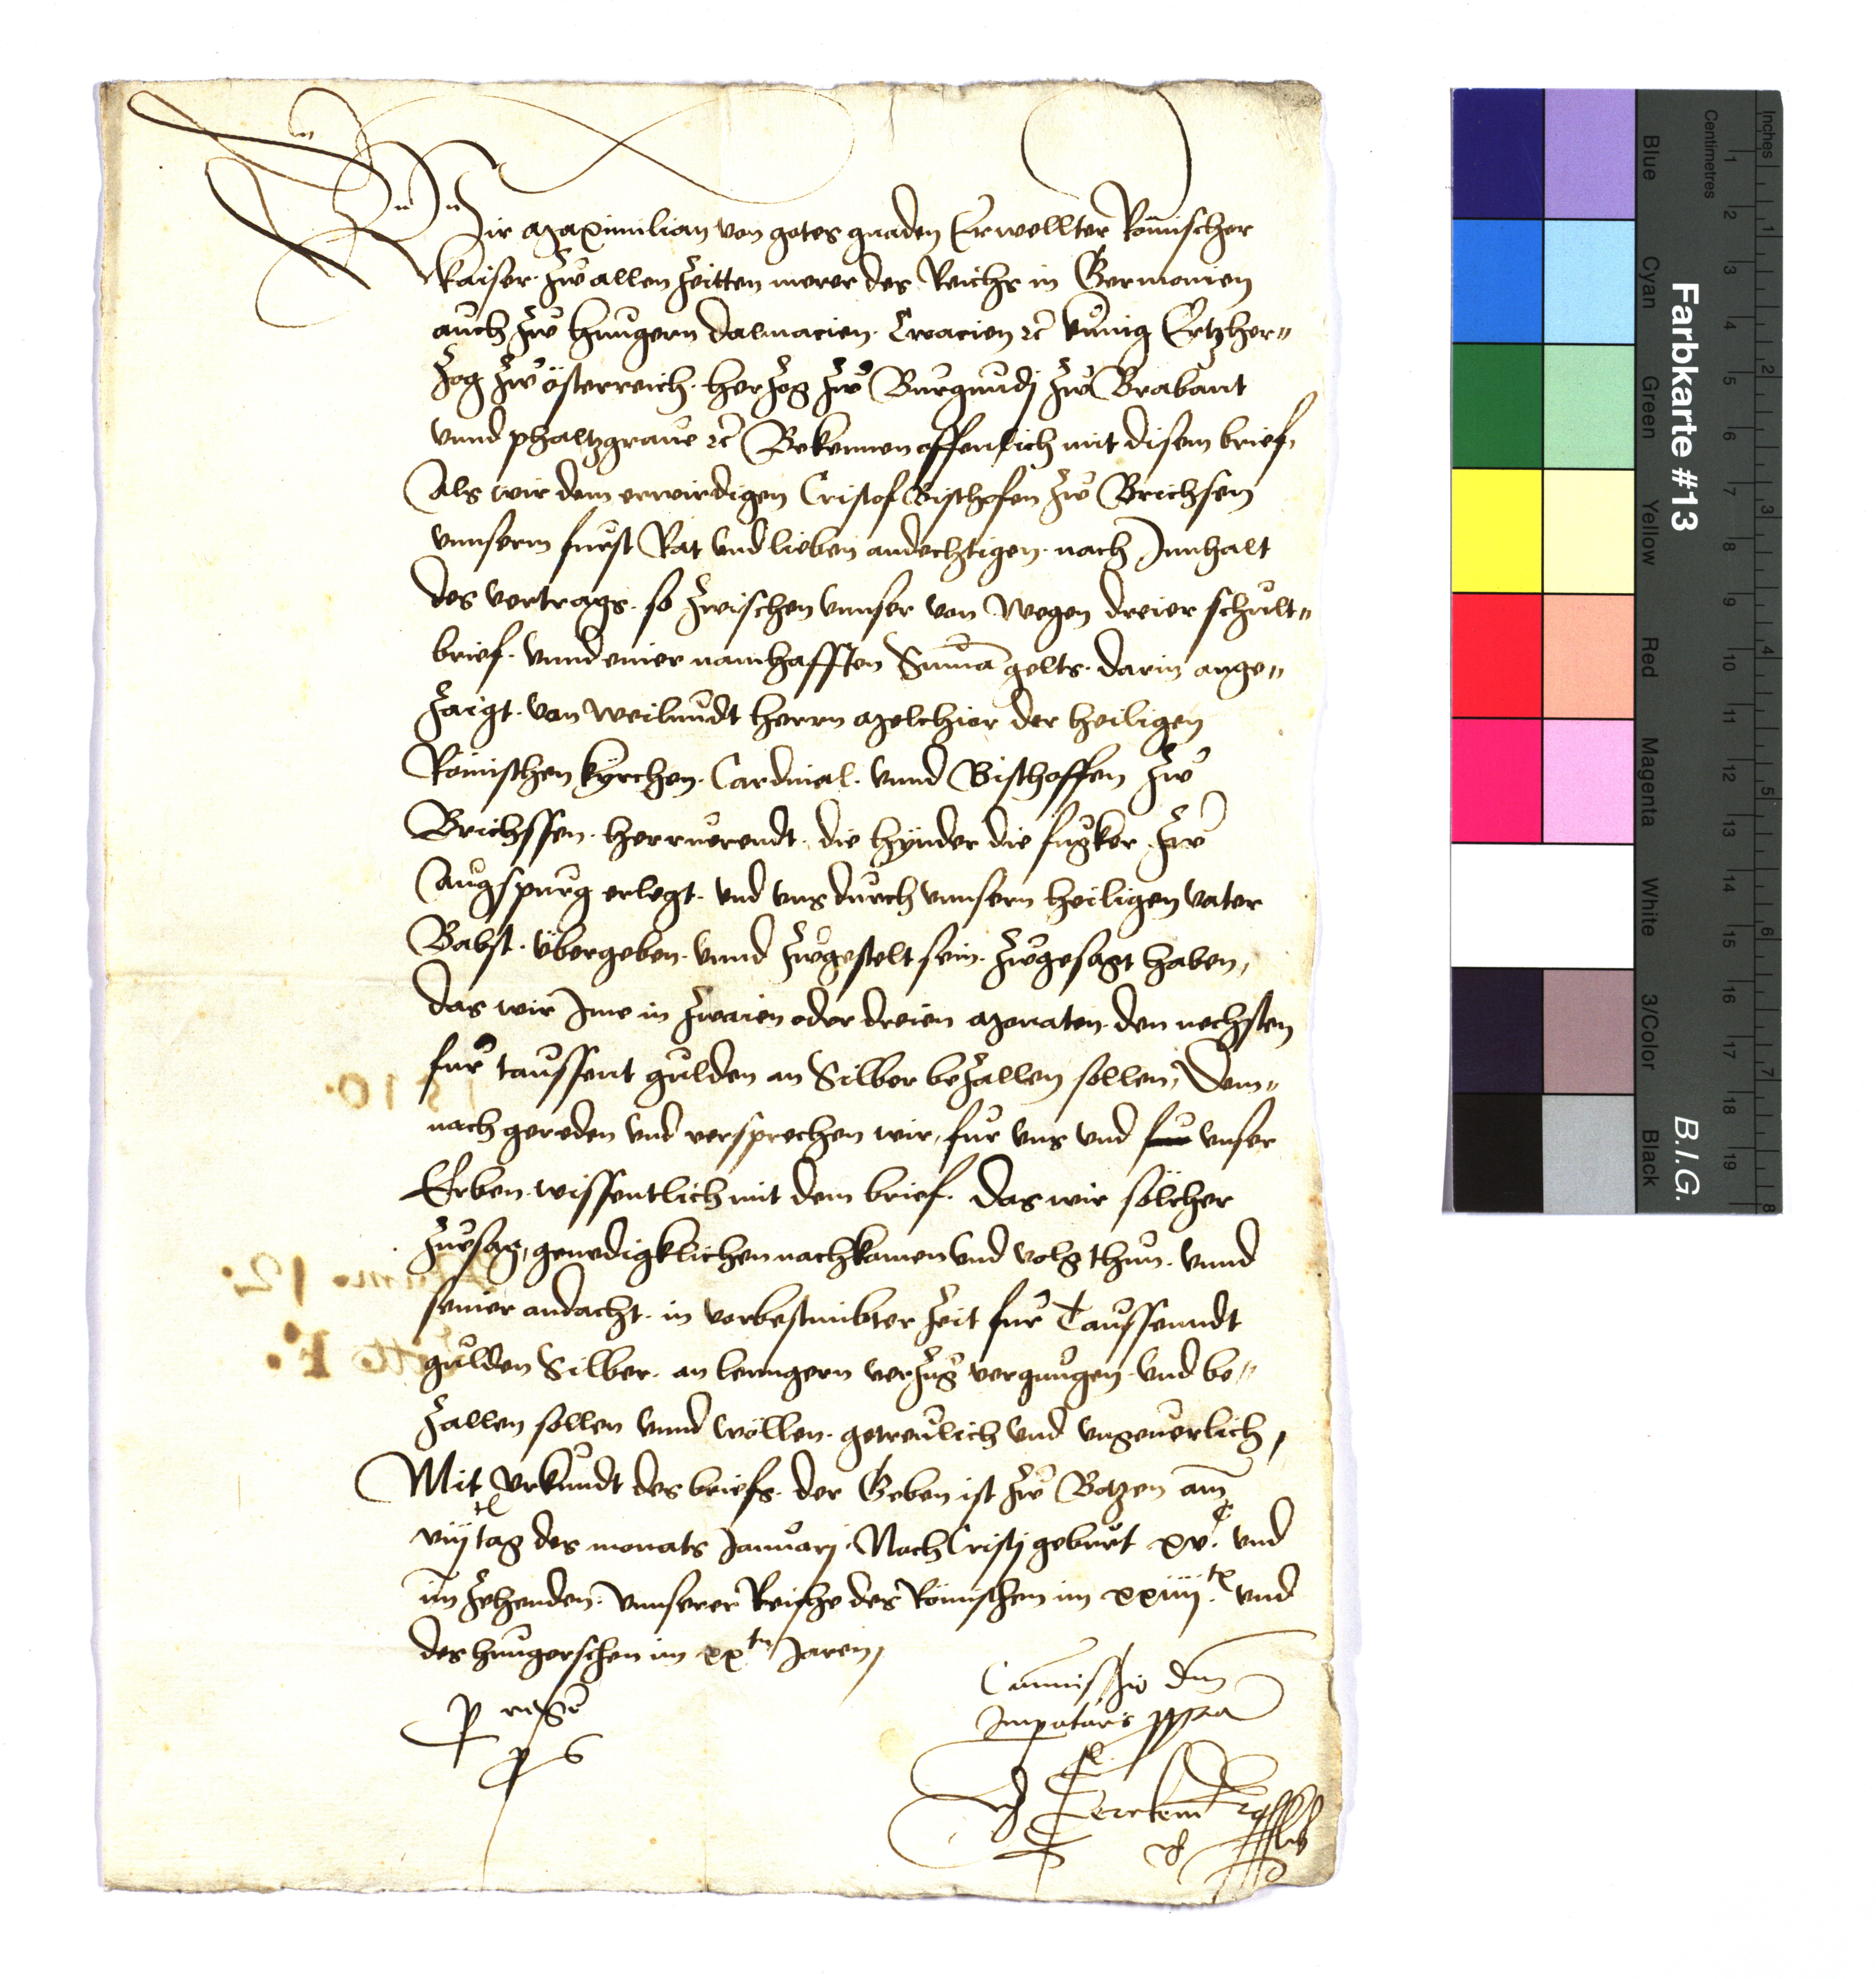 Wir Maximilian von gotes gnaden Erwellter Römischer
kaiser. zw allen Zeitten merer des Reichs in Germonien
auch zw hungern Dalmacien. Croacien etc kunig Ertzher=
zog zw österreich. herzog zw Burgundj zw Brabant
vnnd phaltzgraue etc Bekennen offenlich mit disem brief,
Als wir dem erwirdigen Cristof Bischofen zw Brichsen
vnnserm furst Rat vnd lieben andechtigen. nach Innhalt
des vertrags. so zwischen vnnser von wegen dreier schult=
brief. vnnd einer namhafften Suma gelts. darin ange=
zaigt. von weilundt herrn Melchior der heiligen
Römischen kyrchen. Cardinal. vnnd Bischoffen zw
Brichssen. herruerendt. die hynder die fugker zw
Augspurg erlegt. vnd vns durch vnnsern heiligen vater
Babst. übergeben. vnnd zwgestelt sein. zwgesagt haben,
das wir Ime in zwaien oder dreien Monaten. den nechsten
fur taussent gulden an Silber bezallen sollen, Dem=
nach gereden vnd versprechen wir, fur vns vnd vnser
Erben. wissentlich mit dem brief. das wir sölcher
zusag, genedigklichen nachkomen vnd volg thun. vnnd
seiner andacht. in vorbestimbter Zeit fur Taussenndt
gulden Silber. an lenngern verzug vergnugen. vnd be=
zallen sollen vnnd wöllen. getreulich vnd vngeuerlich,
Mit vrkundt des briefs. der Geben ist zw Botzen am
viij tag des monats Januarj. Nach Cristj geburt xv.c vnd
im zehenden. vnnserer Reiche des Römischen im xxiiij.te vnd
des hungerschen im xxten Jaren,
Comissio dni
p regem
Imperatoris ppria
p s
1510.
12.